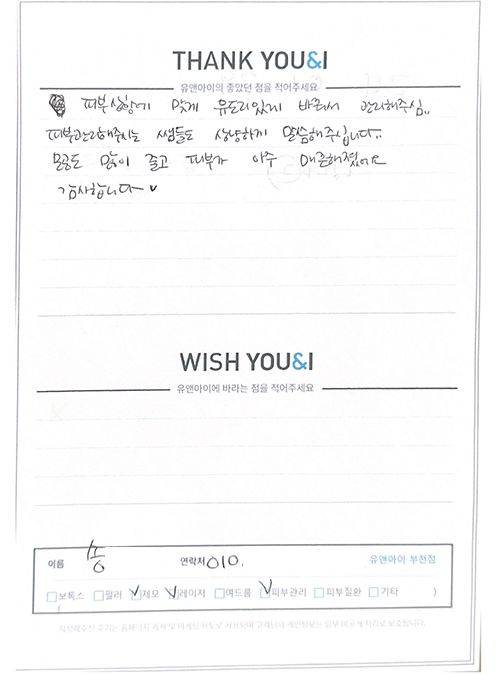 THANK YOU&I
유앤아이의 좋았던 점을 적어주세요
피부상황에 맞게 유도리있게 바꿔서 관리해주심..
피부관리해주시는 쌤들도 상냥하게 말씀해주십니다..
모공도 많이 줄고 피부가 아주 매끈해졌어요
감사합니다
WISH YOU&I
유앤아이에 바라는 점을 적어주세요
이름 연락처 010. 유앤아이 부천점
보톡스 필러 제모 레이저 여드름 피부관리 피부질환 기타 )
작성해주신 후기는 홈페이지 게재 및 마케팅 용도로 사용되며 고객님의 개인정보는 일부 비공개 처리로 보호됩니다.